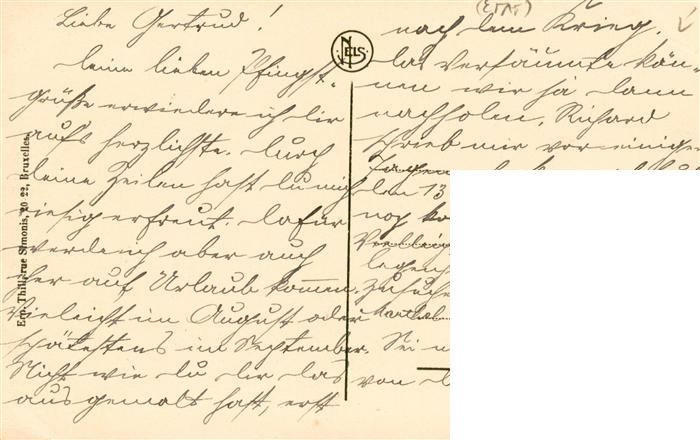 Liebe Gertrud!
deine lieben Pfingst-
grüße erwiedere ich dir
aufs herzlichste. Durch
deine Zeilen hast du mich
riesig erfreut. Dafür
werde ich aber auch
eher auf Urlaub kommen.
Vieleicht im August oder
spätestens im September.
Nicht wie du dir das
ausgemalt hast, erst
nach dem Krieg.
das versäumte kön-
nen wir ja dann
nachholen. Richard
schrieb mir vor einigen
Tagen
den 13
noch
legen
Sei
von
NELS
Ern. Thill, rue Simonis, 20-22, Bruxelles